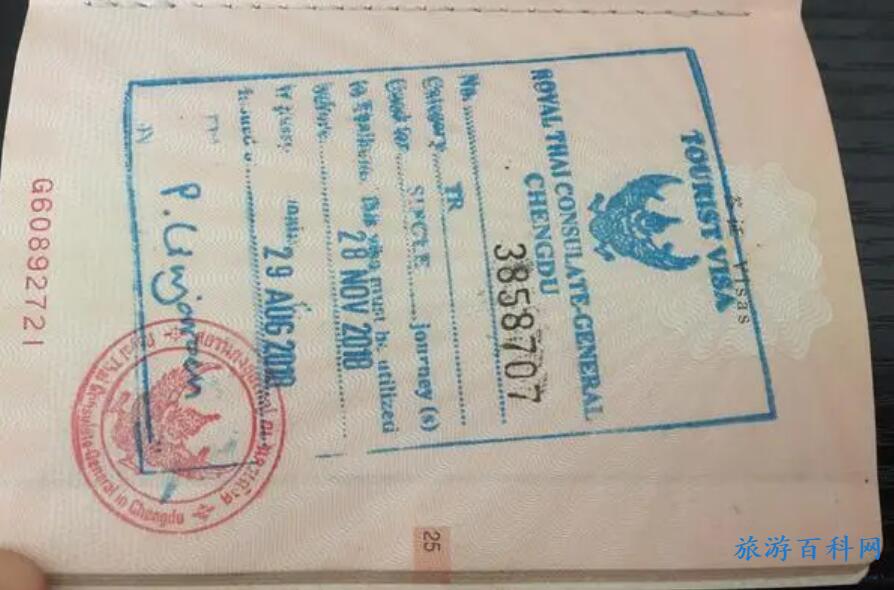 签证 Visas
TOURIST VISA
ROYAL THAI CONSULATE-GENERAL
CHENGDU
No. 3858707
Category TR
Good for SINGLE journey(s)
This visa must be utilized
before 28 NOV 2018
29 AUG 2018
Royal Thai Consulate-General in Chengdu
G60892721
25
旅游百科网